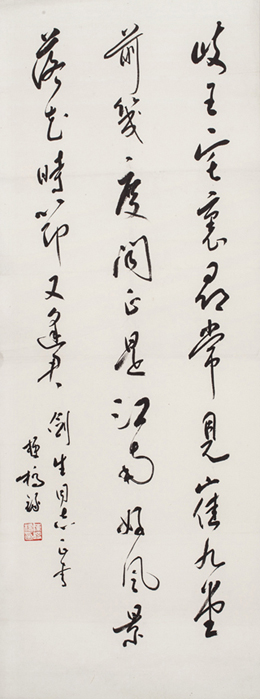 岐王宅裏尋常見崔九堂
前幾度聞正是江南好風景
落花時節又逢君
劍生同志正
橋